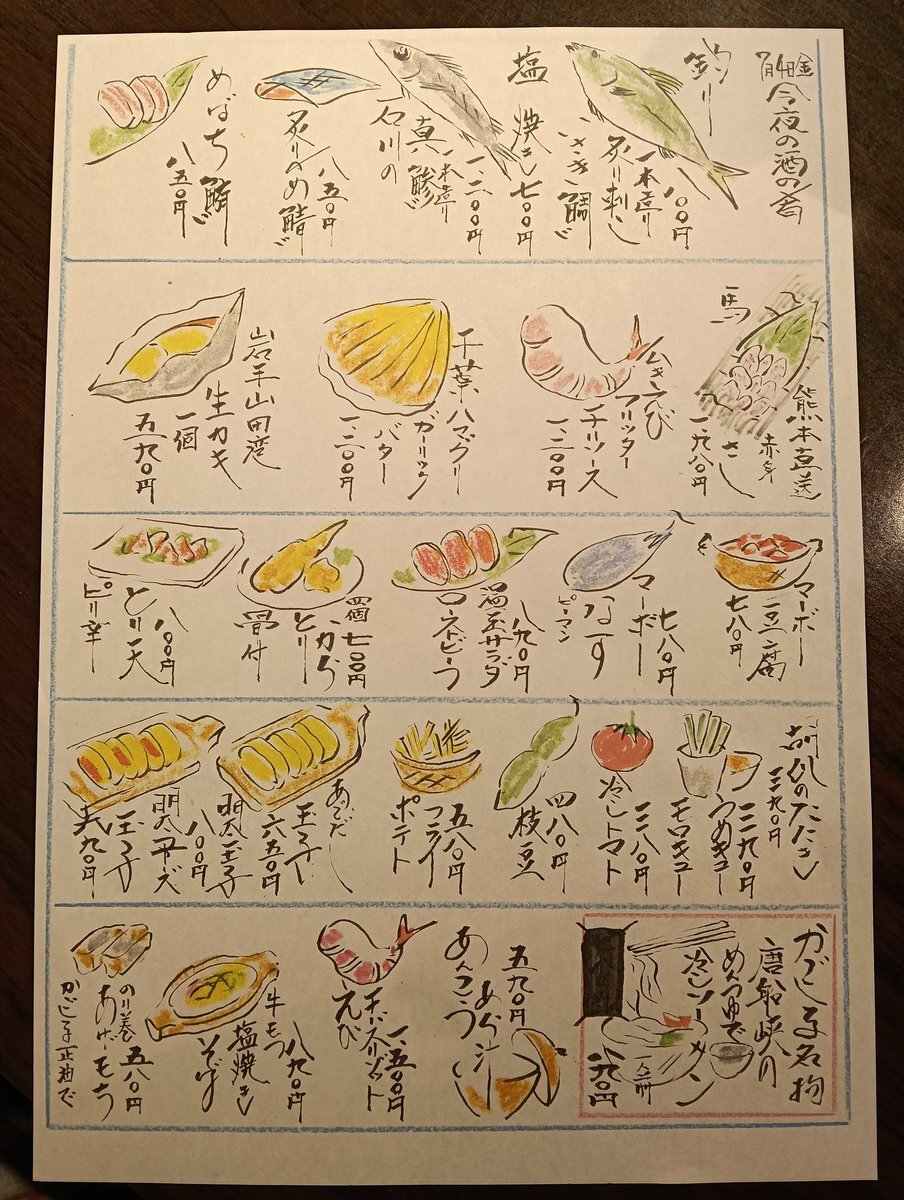 7月4日金
今夜の酒の肴
釣り
いさき
一本造り
炙り刺し
一八〇〇円
塩焼き七〇〇円
石川の
真鯵
一本造り
一、二〇〇円
炙りしめ鯖
八五〇円
めばち鮪
八五〇円
熊本直送
赤身
馬さし
一、九八〇円
むきえび
フリッター
チリソース
一、二〇〇円
千葉ハマグリ
ガーリック
バター
一、二〇〇円
岩手山田湾
生カキ
一個
五九〇円
マーボー
豆腐
七八〇円
マーボー
なす
ピーマン
七八〇円
ローストビーフ
温玉サラダ
八九〇円
骨付
とりから
四個七〇〇円
ピリ辛
とり天
八〇〇円
胡瓜のたたき
三九〇円
うめキュー
モロキュー
三九〇円
冷しトマト
三八〇円
枝豆
四八〇円
フライ
ポテト
五八〇円
玉子
六五〇円
明太玉子
八〇〇円
明太チーズ
玉子
九〇円
かごしま名物
唐船峡の
めんつゆで
冷しソーメン
一人前
八九〇円
あんこう
あら汁
五九〇円
えび
チーズリゾット
一、五〇〇円
牛もつ
塩焼き
そば
八九〇円
のり巻
あげもち
五八〇円
かごしま正油で